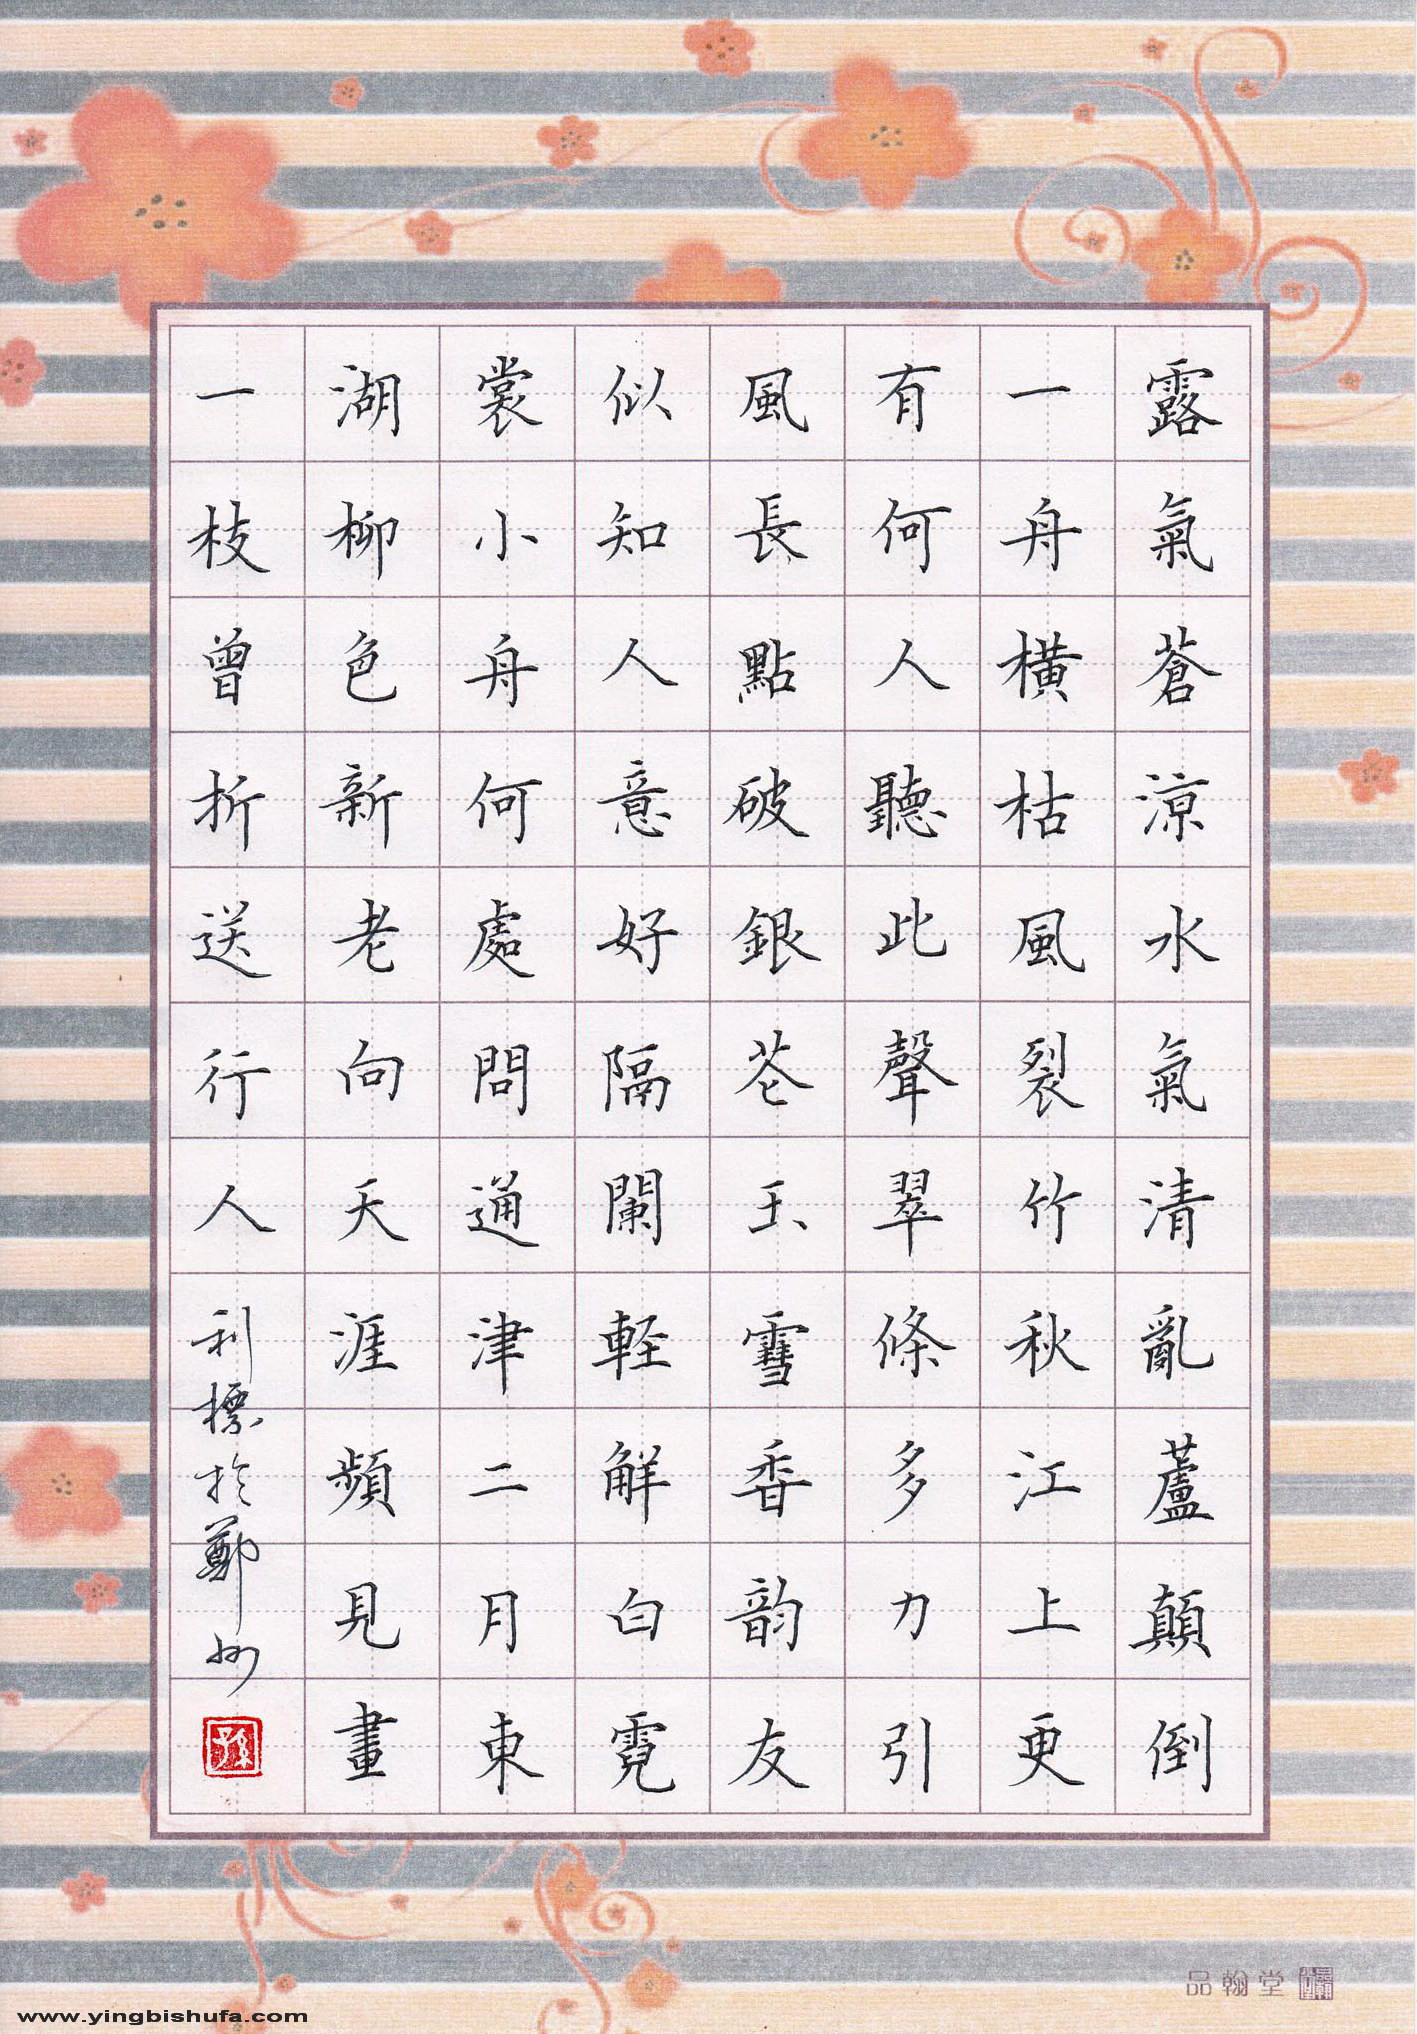 露氣蒼涼水氣清亂蘆顛倒
一舟橫枯風裂竹秋江上更
有何人聽此聲翠條多力引
風長點破銀苍玉雪香韵友
似知人意好隔闌軽解白霓
裳小舟何處問通津二月東
湖柳色新老向天涯頻見畫
一枝曾折送行人
利標於鄭州
孫
品翰堂
www.yingbishufa.com